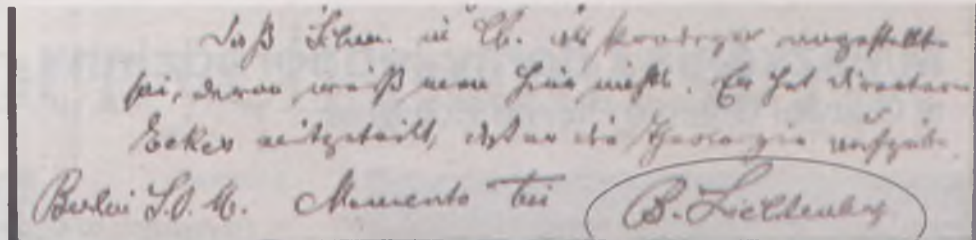 daß Schm. in Lb. als Prediger angestellt
sei, davon weiß man hier nichts. Er hat
Ecker mitgeteilt, daß er die Theologie aufgebe.
Berlin S.O. M. Memento bei B. Lichtenberg